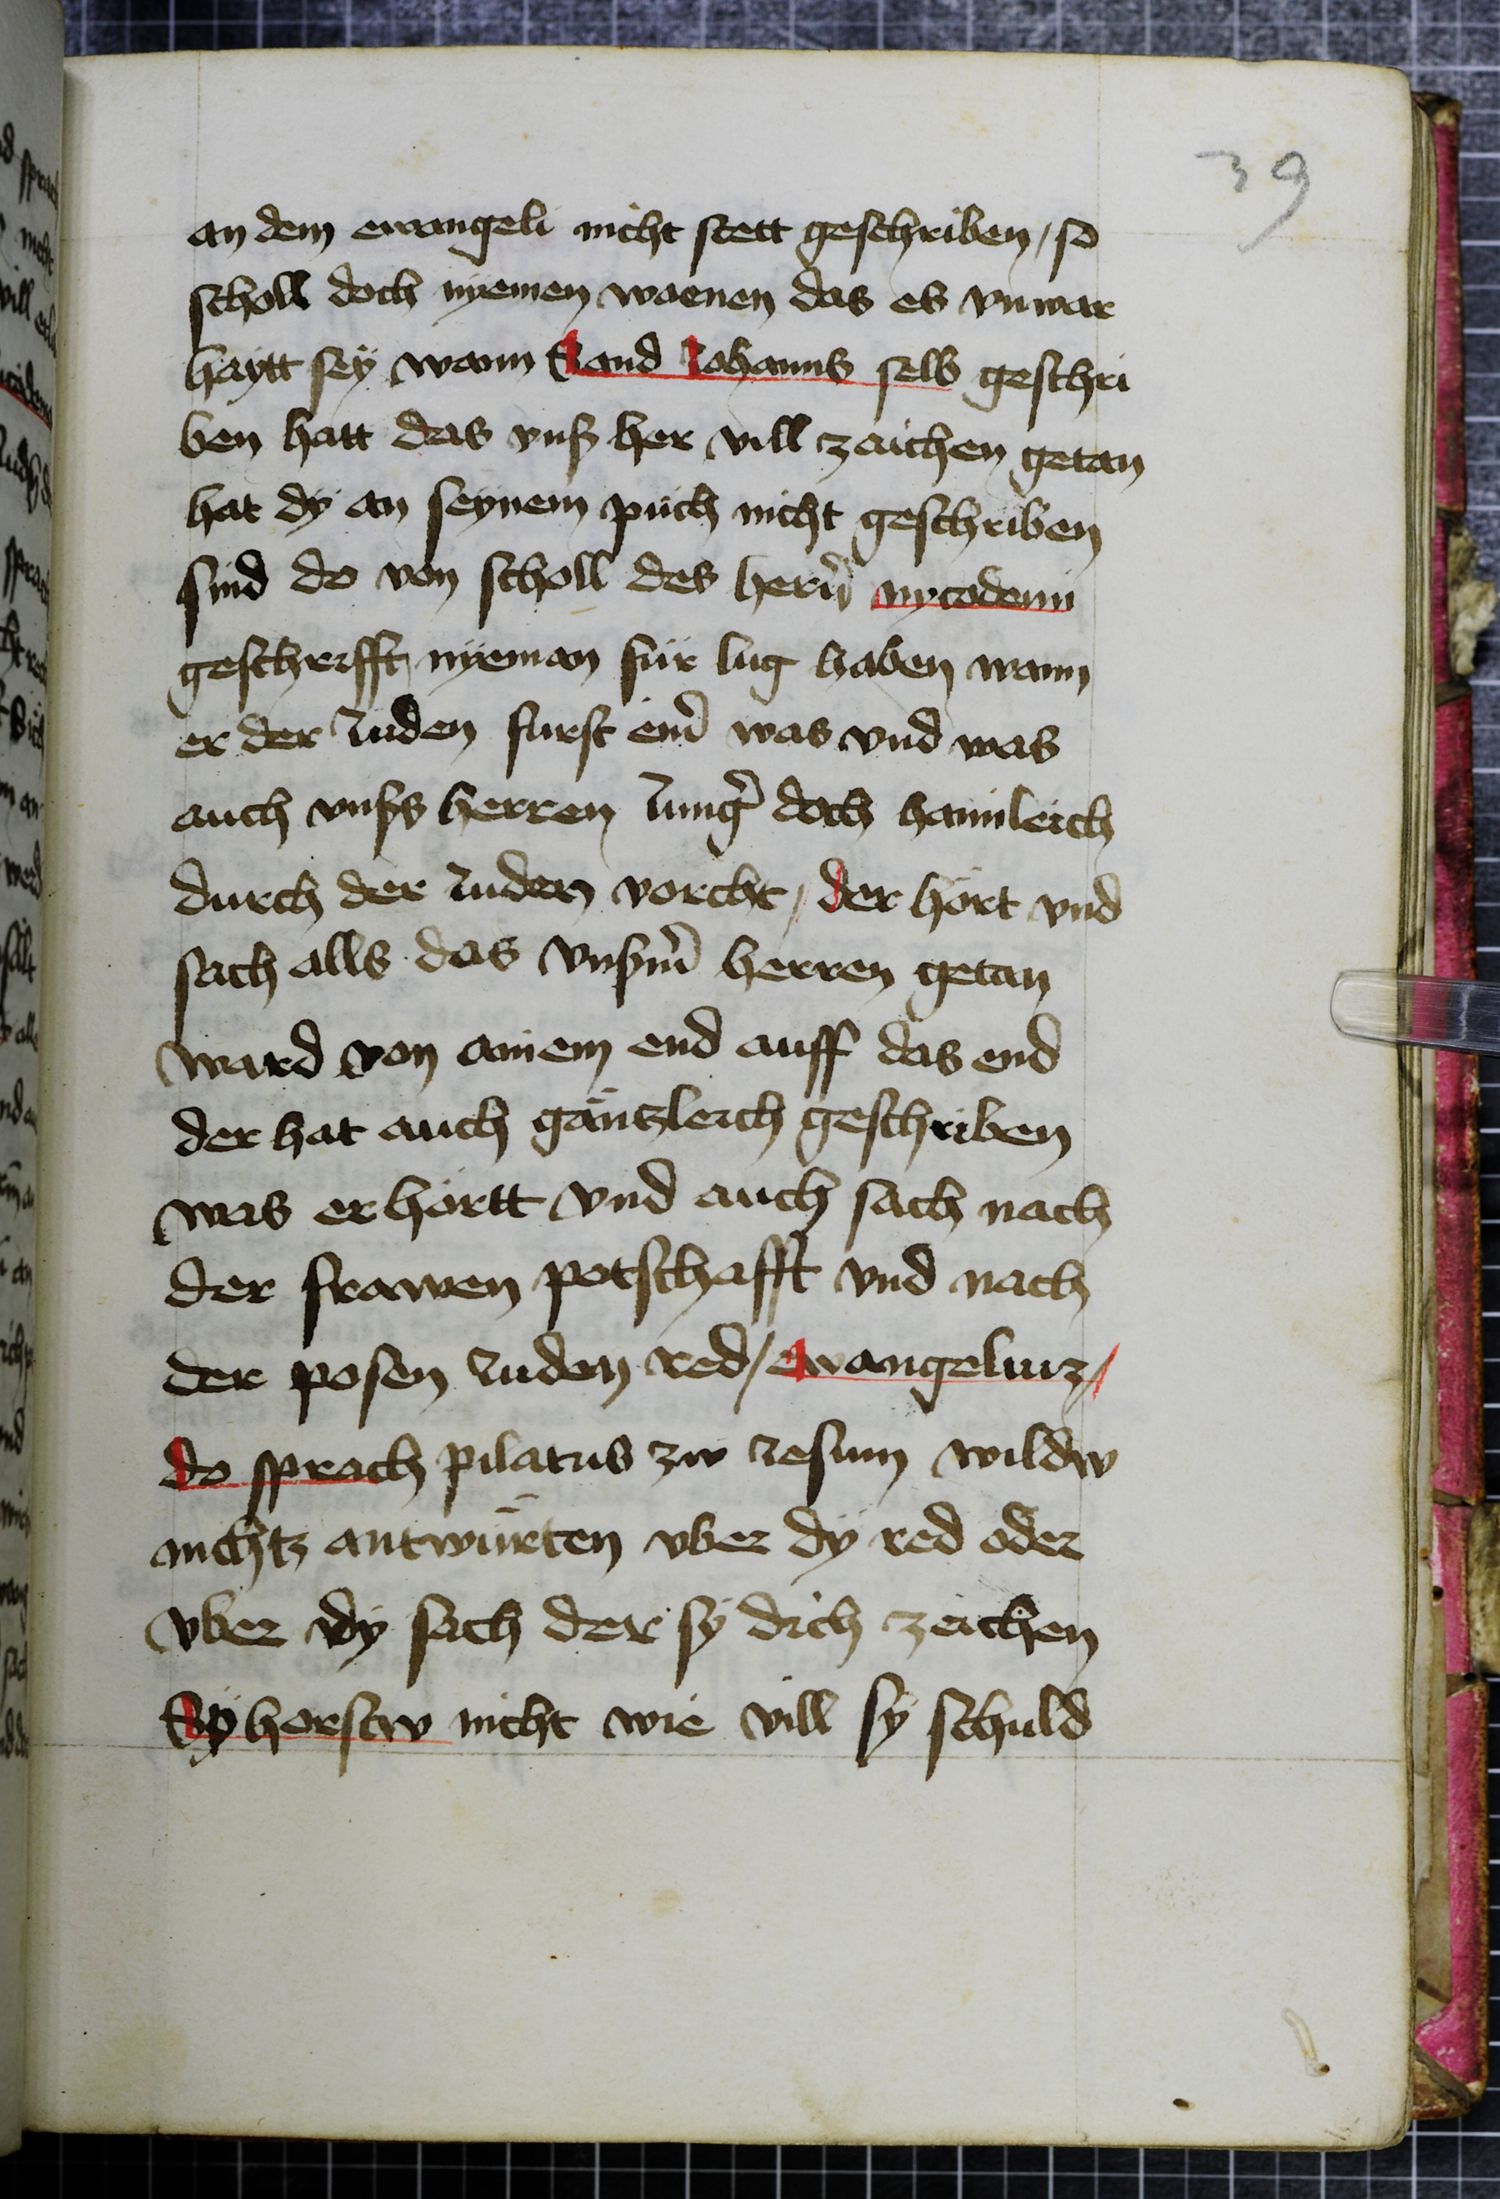 39
an dem ewangeli nicht stett geschriben / so
scholl doch nyemen waenen das es vnwar
haytt sey wann Sand Johanns selb geschri
ben hatt das vnß her vill zaichen getan
hat dy an seynem puch nicht geschriben
sind do von scholl des herñ nycodemi
geschrifft nyeman für lug haben wann
er der Juden furst ein̄ was vnd was
auch vnßs herren Jung̉ doch haimleich
durch der Juden vorcht / der hört vnd
sach alls das vnßm̄ herren getan
ward von ainem end auff das end
der hat auch gäntzleich geschriben
was er hörtt vnd auch sach nach
der frawen potschafft vnd nach
der posen Juden red / ewangeliuz /
do sprach pilatus zw Jesum wildw
nichtz antwürten vber dy red oder
vber dy sach der sy dich zeichen
Sy horstw nicht wie vill sy schuld